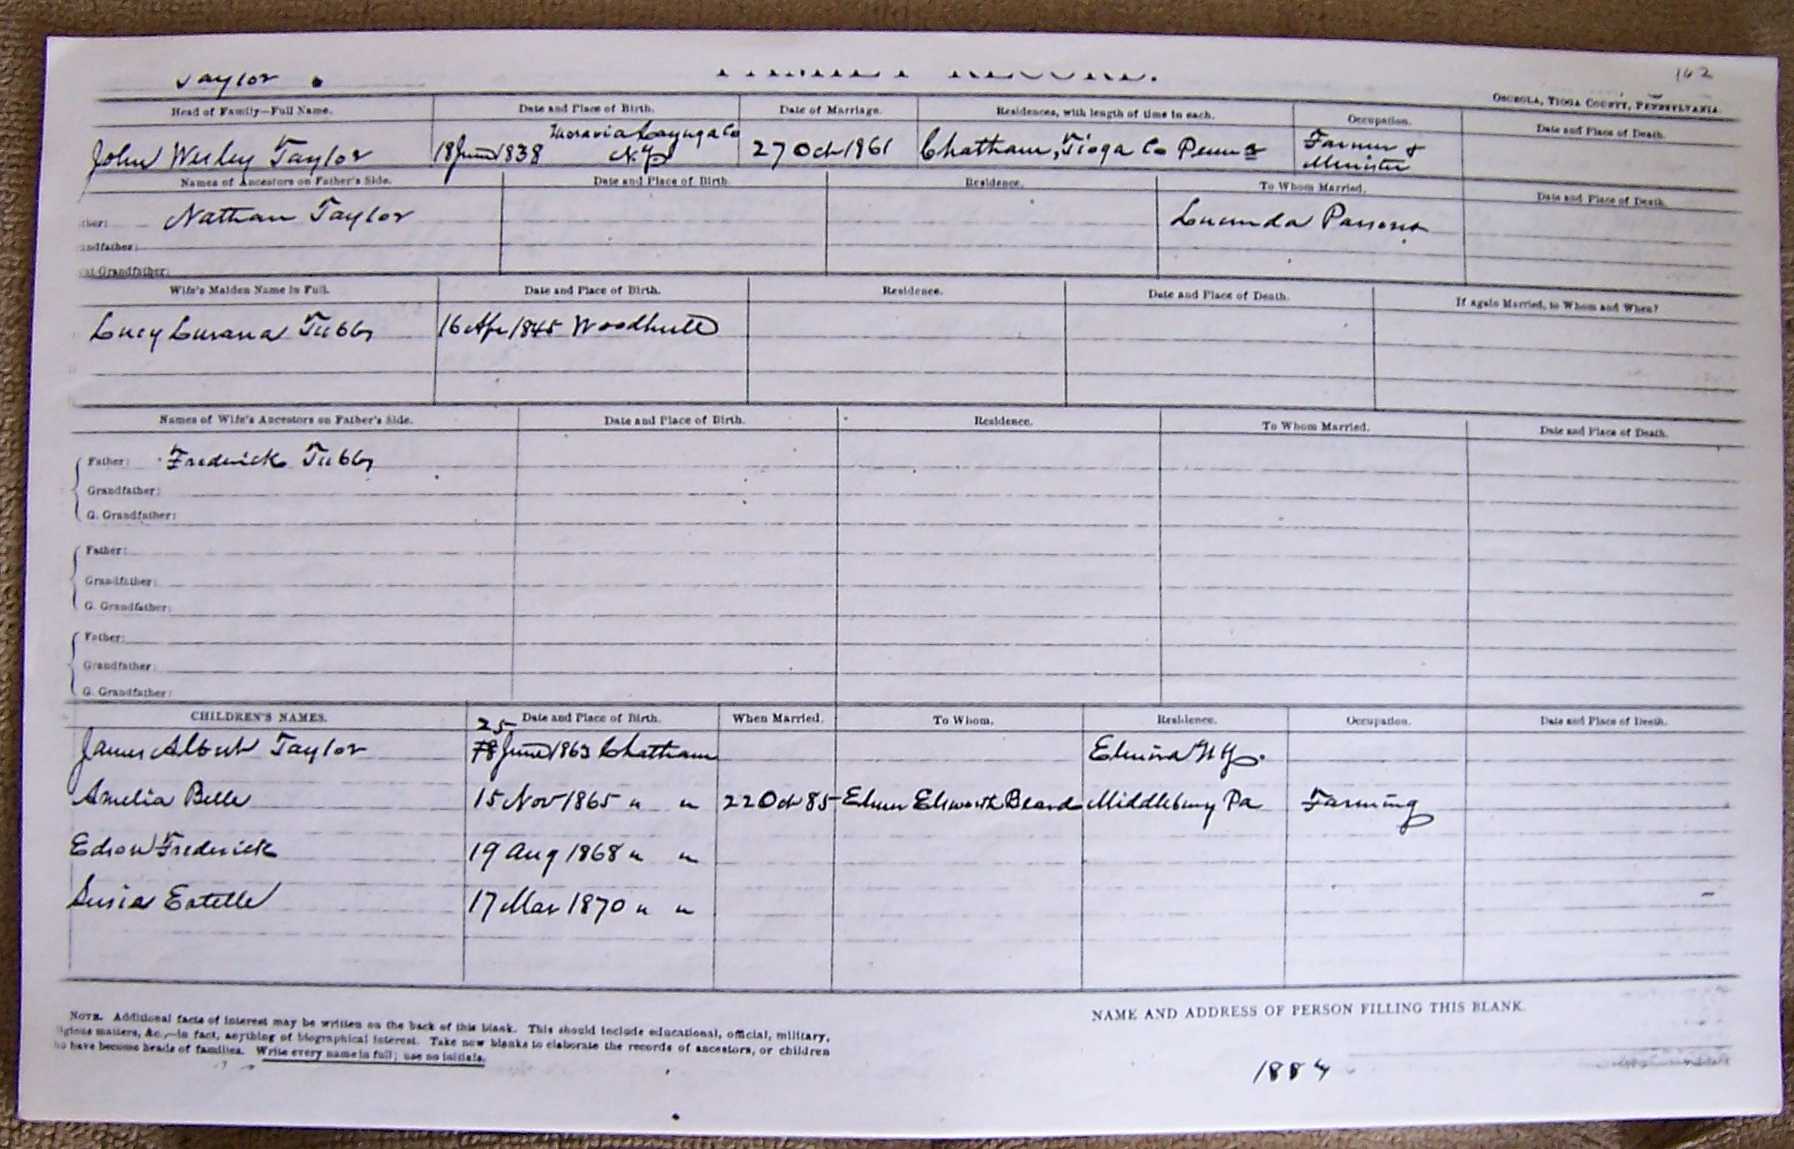 Taylor
162
OSCEOLA, TIOGA COUNTY, PENNSYLVANIA.
Head of Family—Full Name. Date and Place of Birth. Date of Marriage. Residences, with length of time in each. Occupation. Date and Place of Death.
John Wesley Taylor 18 June 1838 Moravia Cayuga Co N.Y. 27 Oct 1861 Chatham, Tioga Co Penna Farmer & Minister
Names of Ancestors on Father's Side. Date and Place of Birth. Residence. To Whom Married. Date and Place of Death.
ther: Nathan Taylor Lucinda Parsons
ndfather:
at Grandfather:
Wife's Maiden Name in Full. Date and Place of Birth. Residence. Date and Place of Death. If again Married, to Whom and When?
Lucy Lurana Tubbs 16 Apr 1845 Woodhull
Names of Wife's Ancestors on Father's Side. Date and Place of Birth. Residence. To Whom Married. Date and Place of Death.
Father: Frederick Tubbs
Grandfather:
G. Grandfather:
Father:
Grandfather:
G. Grandfather:
Father:
Grandfather:
G. Grandfather:
CHILDREN'S NAMES. Date and Place of Birth. When Married. To Whom. Residence. Occupation. Date and Place of Death.
James Albert Taylor 25 June 1863 Chatham Elmira N.Y.
Amelia Belle 15 Nov 1865 " " 22 Oct 85 Elmer Elsworth Beard Middlebury Pa Farming
Edson Frederick 19 Aug 1868 " "
Susie Estelle 17 Mar 1870 " "
NOTE. Additional facts of interest may be written on the back of this blank. This should include educational, official, military,
igious matters, &c.,—in fact, anything of biographical interest. Take new blanks to elaborate the records of ancestors, or children
ho have become heads of families. Write every name in full; use no initials.
NAME AND ADDRESS OF PERSON FILLING THIS BLANK.
1884